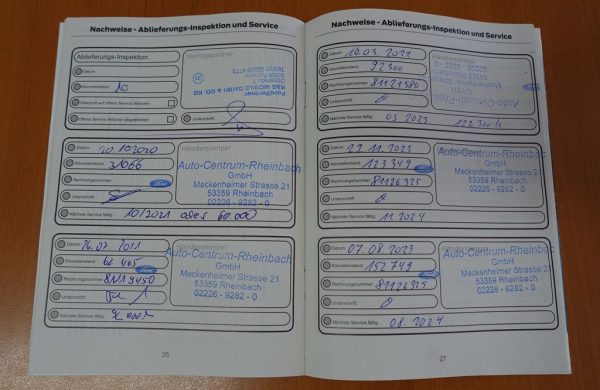 Nachweise - Ablieferungs-Inspektion und Service
Ablieferungs-Inspektion
Vertragspartner
Datum
Kilometerstand AC
Überprüft auf offene Service Aktionen
Offene Service Aktionen abgearbeitet
Unterschrift
FordPartner
R&S MOBILE GMBH & CO KG
Datum 20/10/2020
Händlerstempel
Kilometerstand 31066
Rechnungsnummer
Unterschrift
Nächste Service fällig: 10/2021 oder 60.000
Auto-Centrum-Rheinbach
GmbH
Meckenheimer Strasse 21
53359 Rheinbach
02226 - 9282 - 0
Datum 26.07 2021
Händlerstempel
Kilometerstand 62 465
Rechnungsnummer
Unterschrift
Nächste Service fällig:
Auto-Centrum-Rheinbach
GmbH
Meckenheimer Strasse 21
53359 Rheinbach
02226 - 9282 - 0
26
Nachweise - Ablieferungs-Inspektion und Service
Datum 10.03 2022
Kilometerstand 92300
Rechnungsnummer 81121580
Unterschrift
Nächste Service fällig: 03 2023 122 300 k
Auto-Centrum-Rheinbach
GmbH
53359 Rheinbach
Datum 29 11. 2023
Kilometerstand 123 349
Rechnungsnummer 81126325
Unterschrift
Nächste Service fällig: 11.2024
Auto-Centrum-Rheinbach
GmbH
Meckenheimer Strasse 21
53359 Rheinbach
02226 - 9282 - 0
Datum 07 08. 2023
Kilometerstand 152 749
Rechnungsnummer 81126325
Unterschrift
Nächste Service fällig: 08. 2024
Auto-Centrum-Rheinbach
GmbH
Meckenheimer Strasse 21
53359 Rheinbach
02226 - 9282 - 0
27